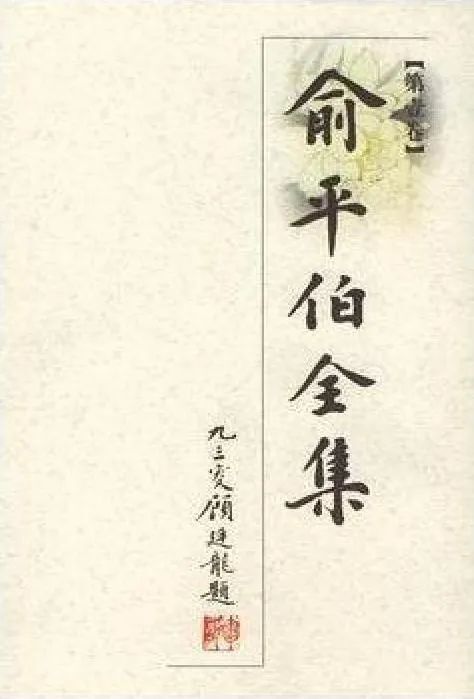 俞平伯全集
九三叟顾廷龙题